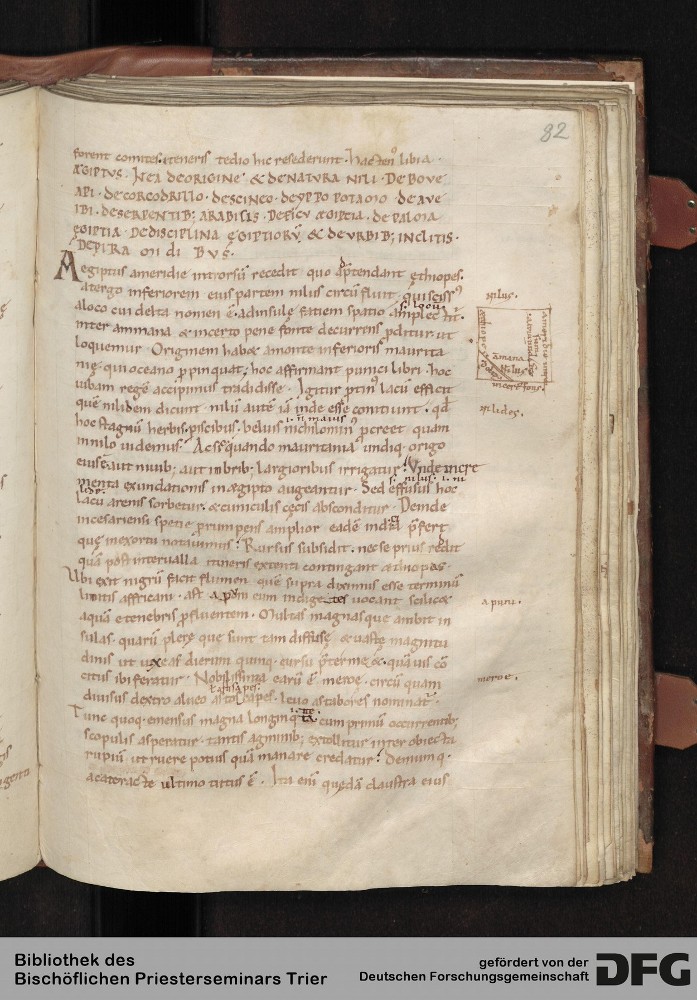 82
forent comites· itineris tedio hic resederunt· Hacten᾽ libia·
ÆGIPTUS· ITEA DE ORIGINE & DE NATURA NILI· DE BOVE
API· DE CORCODRILLO· DE SCINCO· DE YPPO POTAMO· DE AVE
IBI· DE SERPENTIB; ARABICIS· DE FICU ÆGIPTIA· DE PALMA
ĘGIPTIA· DE DISCIPLINA ĘGIPTIORŪ & DE URBIB; INCLITIS·
DE PIRA MI DI BUS·
Aegiptus ameridie introrsū recedit quo p̄tendant ęthiopes·
atergo inferiorem eius partem nilus circū fluit· qui sciss᾽
aloco cui delta nomen ē· adinsulę faciem spatio amplectit̄·
inter amnana & incerto pene fonte decurrens ꝓditur· ut
loquemur· Originem habet amonte inferioris maurita
nię· qui oceano ꝓpinquat· hoc affirmant punici libri· hoc
iubam regē accipimus tradidisse· Igitur ptin᾽ lacū efficit
quē nilidem dicunt· nilū autē iā inde esse coniciunt· qd̄
hoc stagnū herbis· piscibus· beluis nichilomin᾽ ꝓcreet quam
in nilo uidemus· Ac si quando mauritania undiq· origo
eius ē· aut niuib; aut imbrib; largioribus irrigatur· Unde incre
menta exundationis in ægipto augeantur· Sed effusus hoc
lacu arenis sorbetur· & cuniculis cęcis absconditur· Deinde
in cesariensi specie prorumpens amplior eadē indicia p̄fert
quę in exortu notauimus· Rursus subsidit· nec se prius reddit
quā post interualla itineris extenti contingant æthiopas·
Ubi exit nigrū facit flumen quē supra diximus esse terminū
limitis affricani· ast apvm cum indigetes uocant scilicæ
aquā e tenebris ꝓfluentem· Multas magnasque ambit in
sulas· quarū plerę que sunt tam diffusę & uastę magnitu
dinis ut uix eas dierum quinq· cursu p̄termeet· quāuis cō
citus ibi feratur· Nobilissima earū ē meroe· circū quam
diuisus dextro alueo astosapes· leuo astabores nominat̄·
Tunc quoq· emensus magna longinq cum primū occurrentib;
scopulis asperatur· tantis agminib; extollitur inter obiecta
rupiū· ut ruere potius quā manare credatur· Demum q·
a cataracte ultimo tutus ē· Ita enī quędā claustra eius
nilus·
amana
Nilus
incert᾽ fons·
nilides·
apuru·
meroe·
Bibliothek des
Bischöflichen Priesterseminars Trier
gefördert von der
Deutschen Forschungsgemeinschaft
DFG